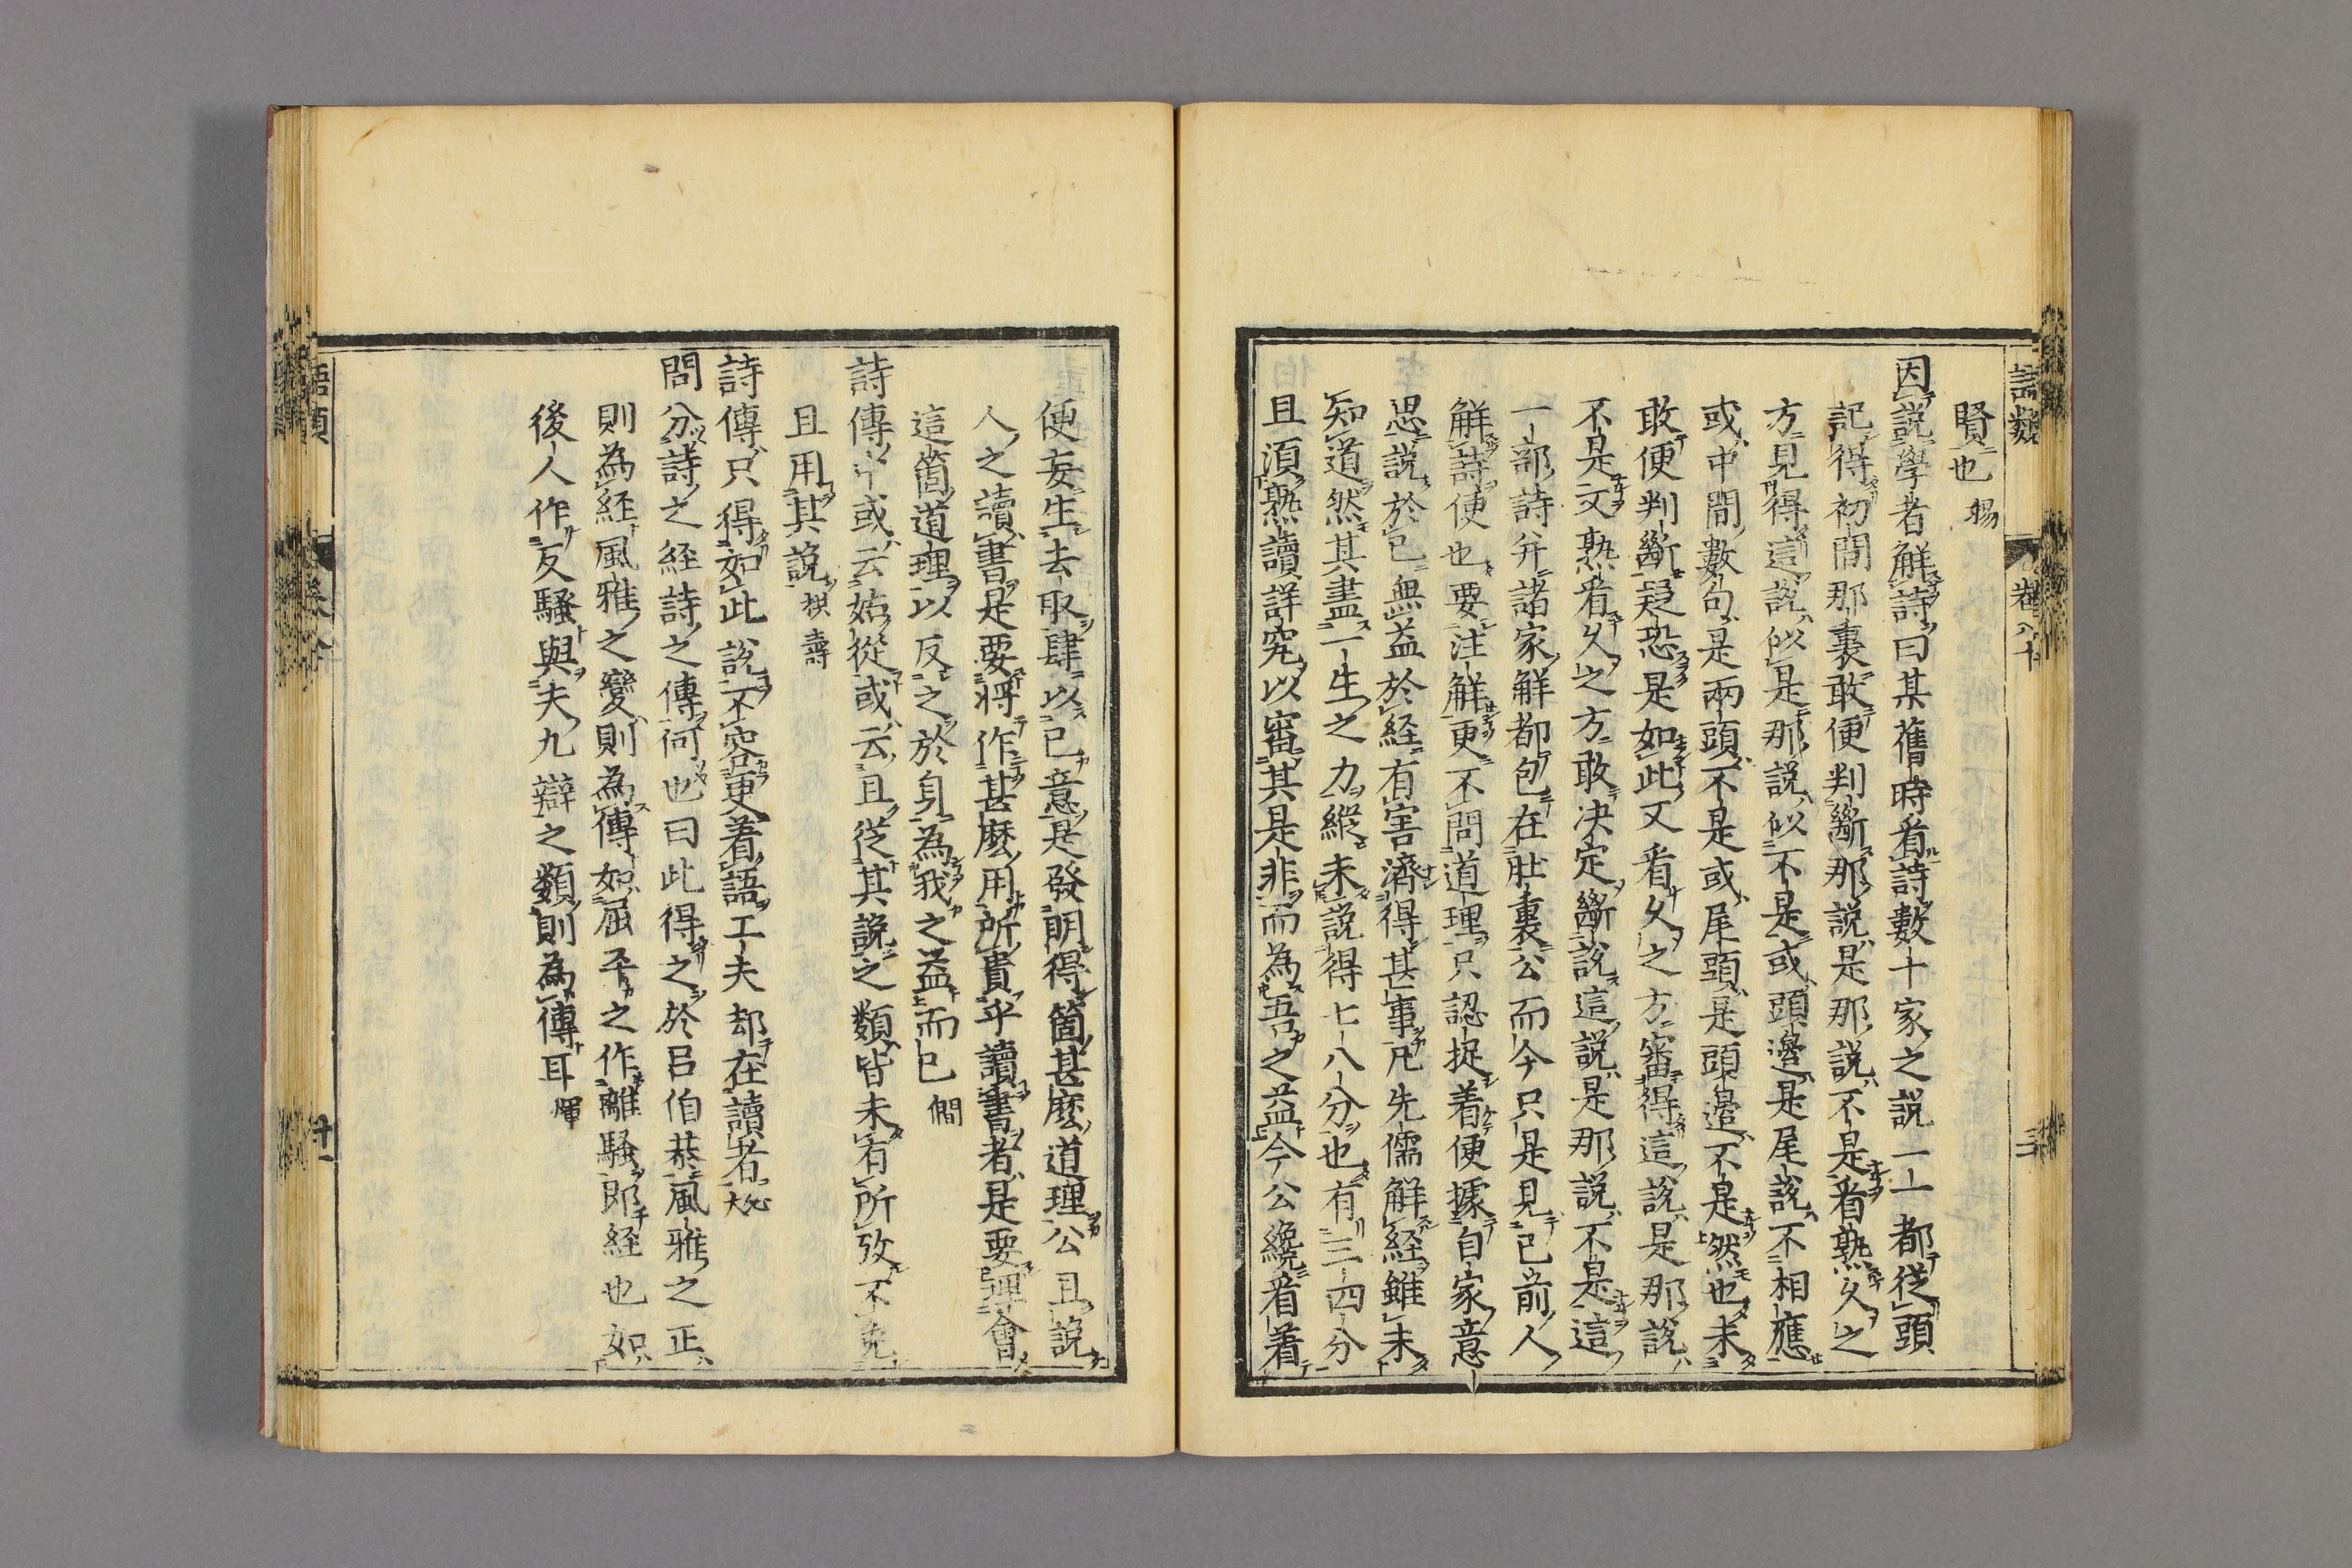 語類 卷八十 三
賢也 賜
因說學者解詩曰某舊時看詩數十家之說一一都從頭
記得初間那裏敢便判斷那說是那說不是看熟久之
方見得這說似是那說似不是或頭邊是尾說不相應
或中間數句是兩頭不是或尾頭是頭邊不是然也未
敢便判斷疑恐是如此又看久之方審得這說是那說
不是又熟看久之方敢决定斷說這說是那說不是這
一部詩并諸家解都包在肚裏公而今只是見已前人
解詩便也要注解更不問道理只認捉着便據自家意
思說於己無益於經有害濟得甚事凡先儒解經雖未
知道然其盡一生之力縱未說得七八分也有三四分
且須熟讀詳究以審其是非而為吾之益今公纔看着
便妄生去取肆以己意是發明得箇甚麼道理公且說
人之讀書是要將作甚麼用所貴乎讀書者是要理會
這箇道理以反之於身為我之益而已 僩
詩傳中或云姑從或云且從其說之類皆未有所攷不免
且用其說 拱壽
詩傳只得如此說不容更着語工夫却在讀者 大兊
問分詩之經詩之傳何也曰此得之於吕伯恭風雅之正
則為經風雅之變則為傳如屈平之作離騷即經也如
後人作反騷與夫九辯之類則為傳耳 煇
語類